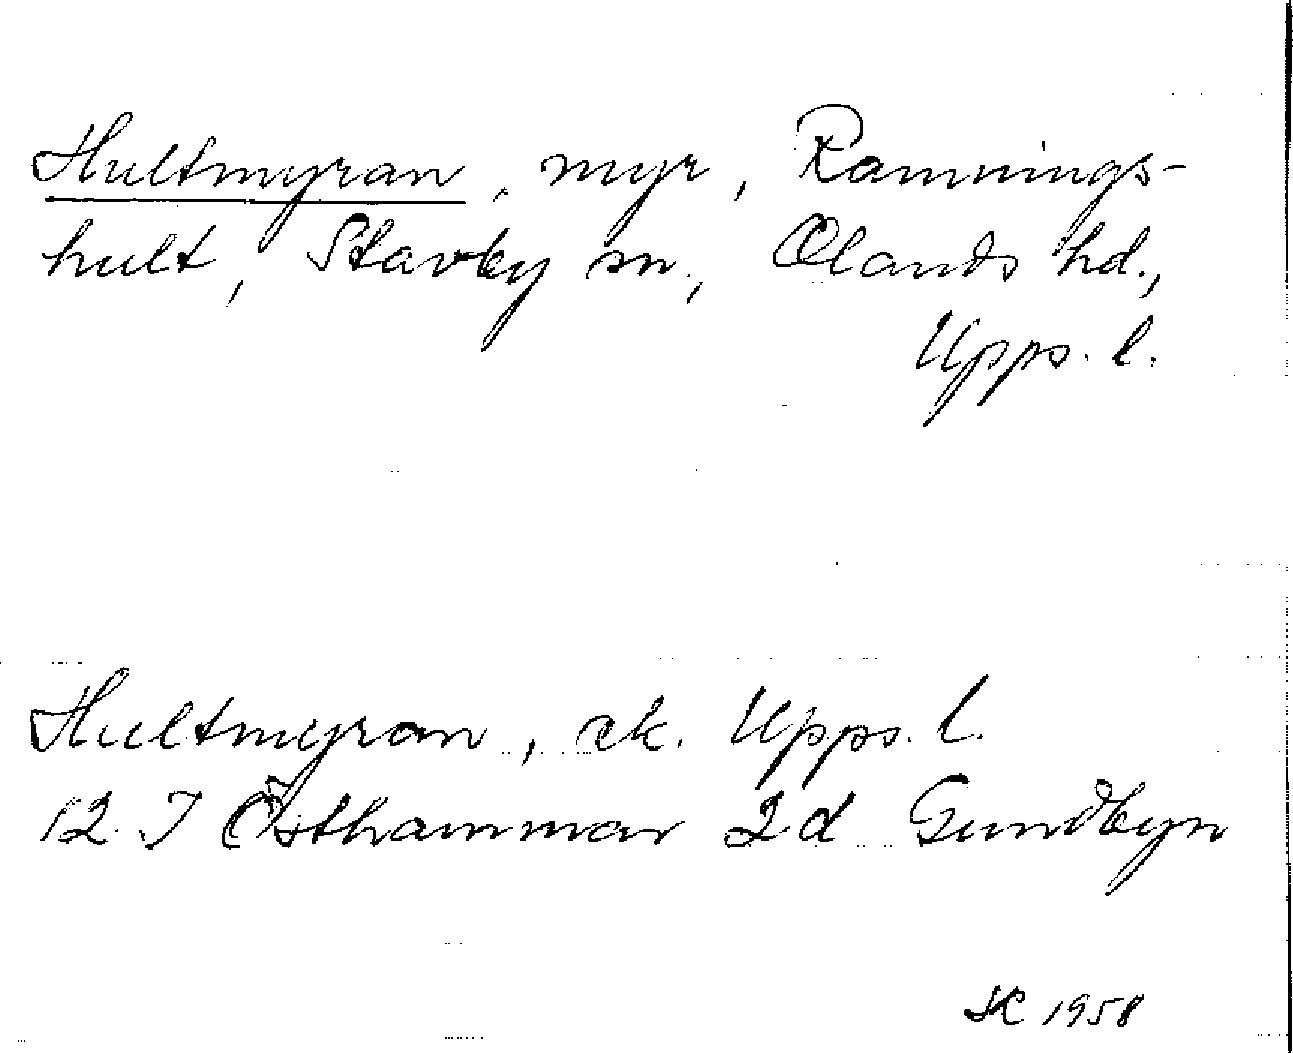 Hultmyran, myr, Ramnings-
hult, Stavby sn, Olands hd.,
Upps. l.
Hultmyran, ek. Upps. l.
12 I Östhammar 2d Gundbyn
1958